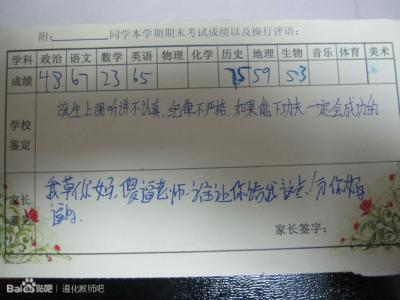 附:________同学本学期期末考试成绩以及操行评语:
学科 政治 语文 数学 英语 物理 化学 历史 地理 生物 音乐 体育 美术
成绩 48 67 23 65 75 59 53
学校鉴定
该生上课听讲不认真,纪律不严格,如果能下功夫,一定会成功的
家长
我草你妈,傻逼老师,让你给我
逼的
家长签字:
Bai度贴吧 | 遵化教师吧